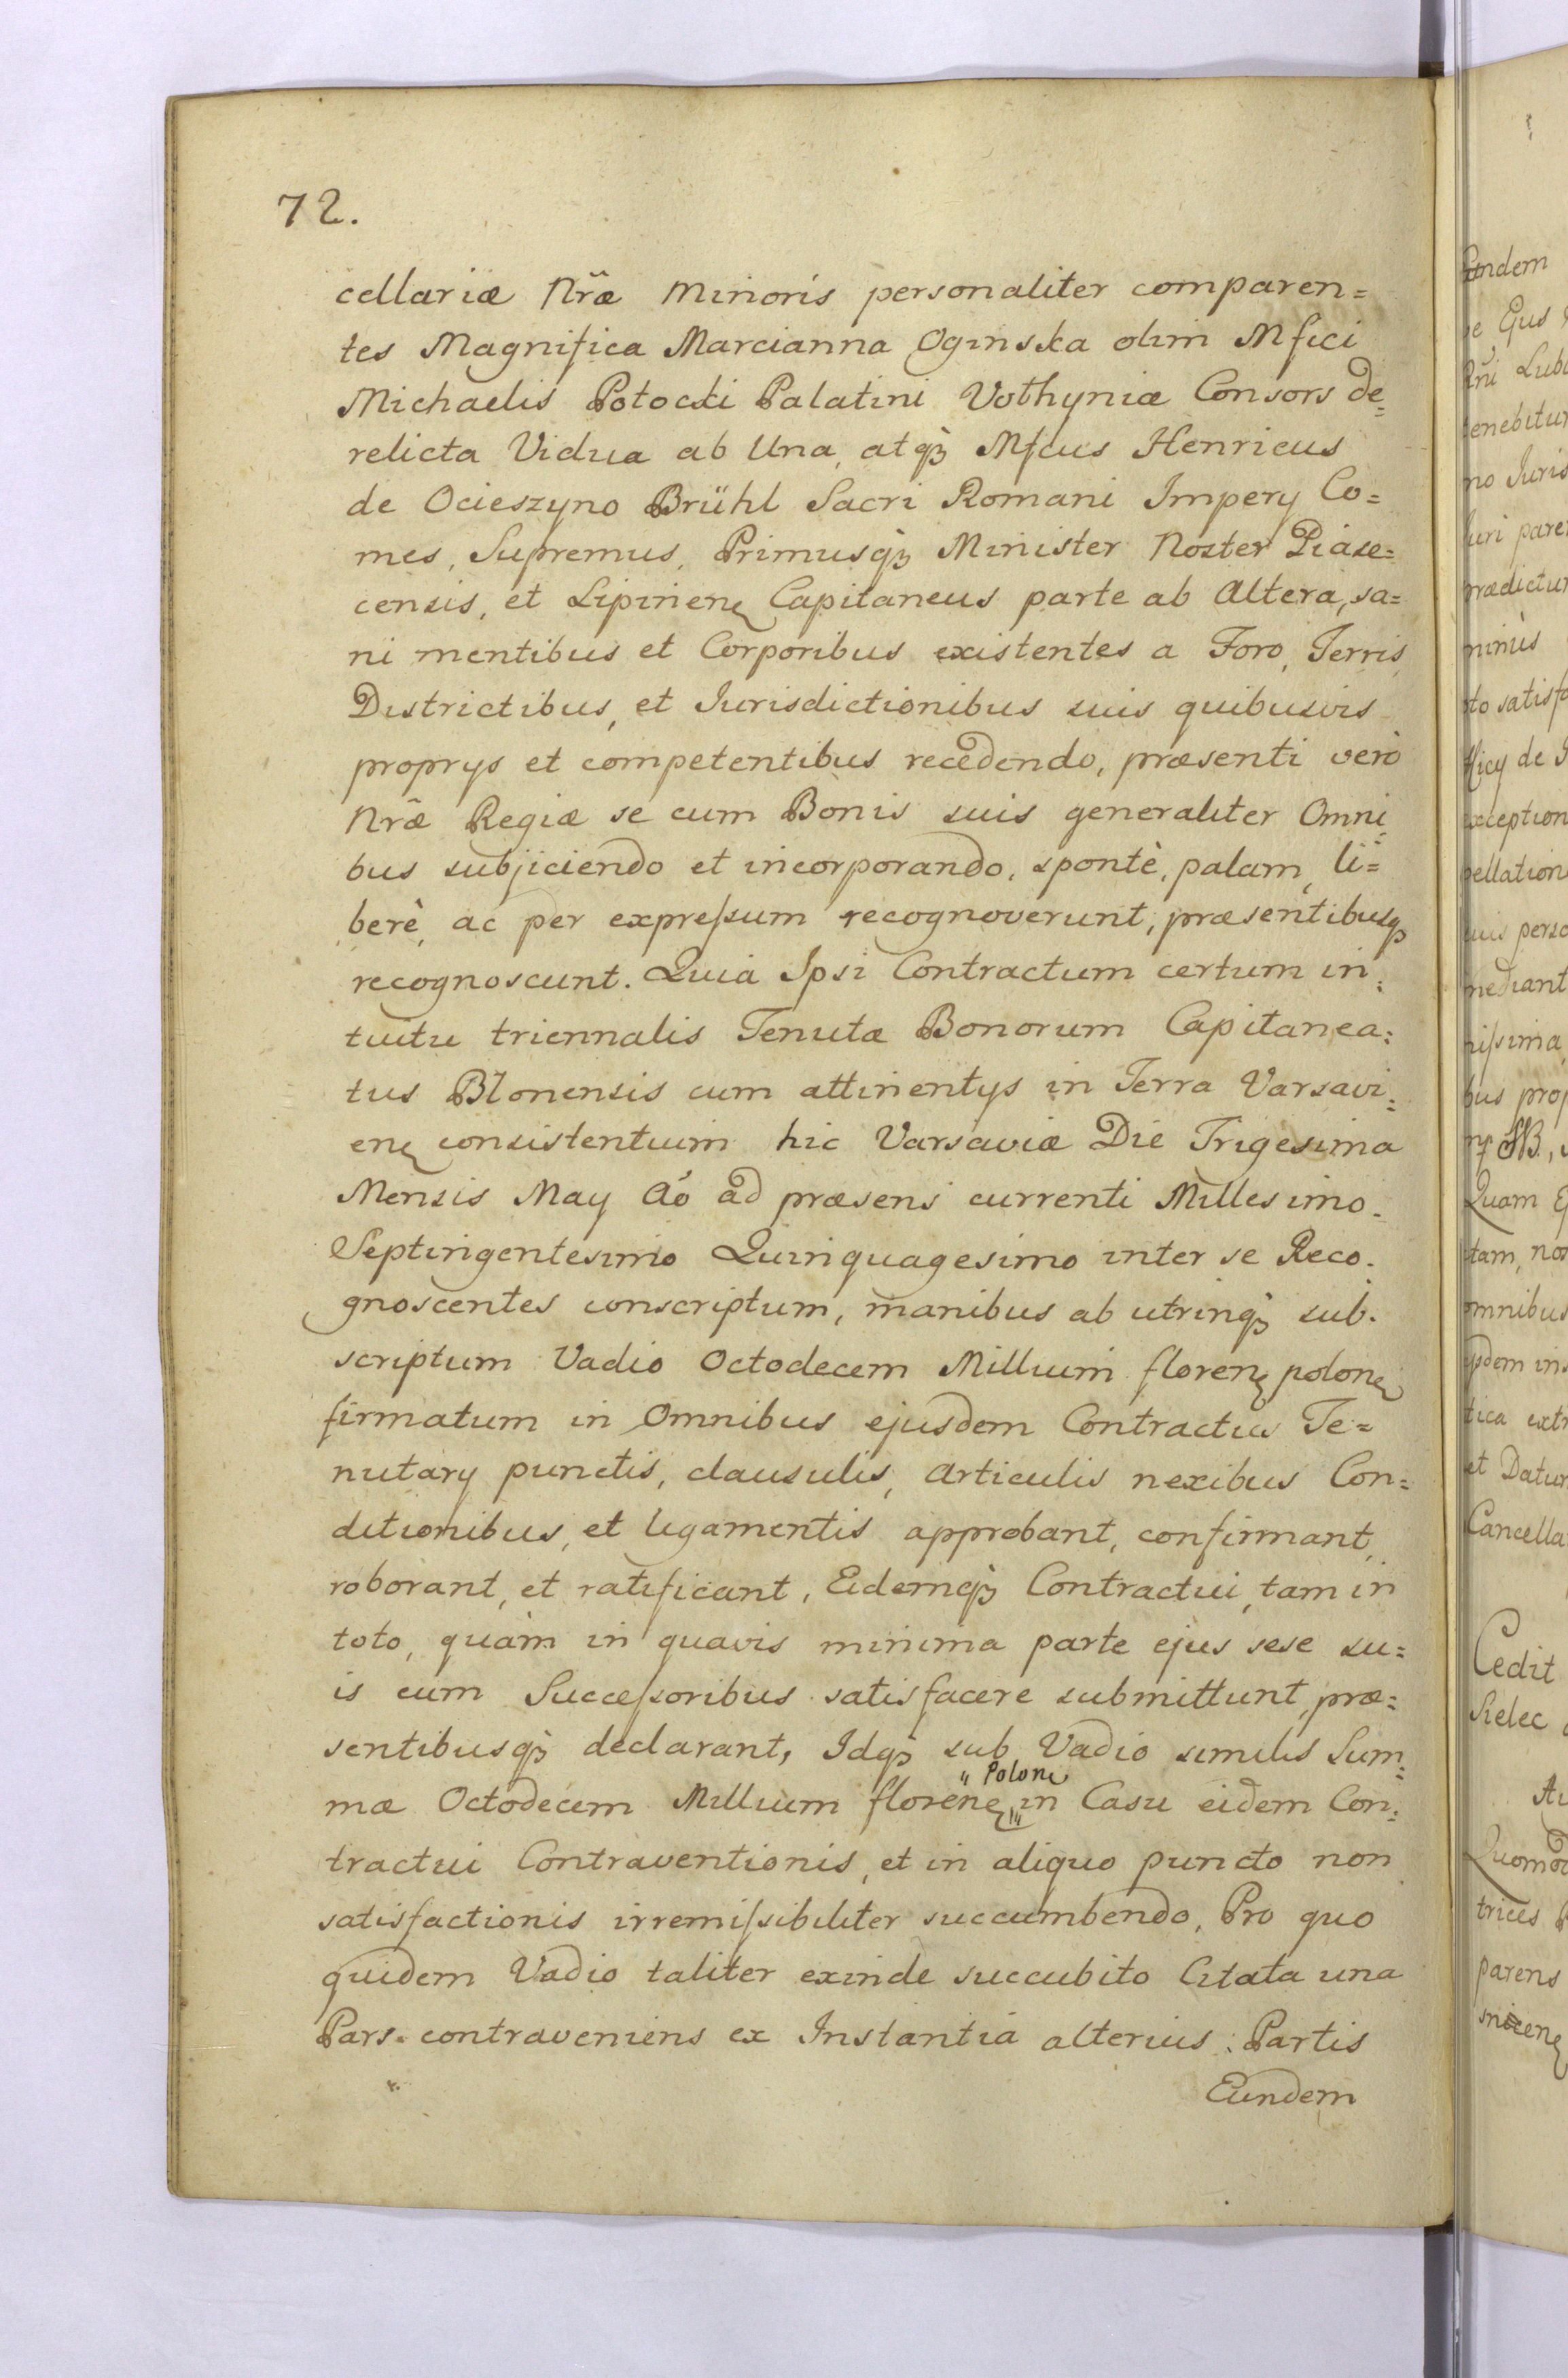 72.
cellariæ Nr̃æ Minoris personaliter comparen=
tes Magnifica Marcianna Oginska olim Mfici
Michaelis Potocki Palatini Vołhyniæ Consors de=
relicta Vidua ab Una, atqꝫ Mfcus Henricus
de Ocieszyno Brühl Sacri Romani Impery Co=
mes, Supremus, Primusqꝫ Minister Noster Piase=
censis, et Lipinenꝭ Capitaneus parte ab Altera, sa=
ni mentibus et Corporibus existentes a Foro, Terris,
Districtibus, et Iurisdictionibus suis quibusvis
proprys et competentibus recedendo, præsenti verò
Nr̃æ Regiæ se cum Bonis suis generaliter Omni=
bus subjiciendo et incorporando, spontè, palam, li=
berè, ac per expreſsum recognoverunt, præsentibusqꝫ
recognoscunt. Quia Ipsi Contractum certum in=
tuitu triennalis Tenutæ Bonorum Capitanea=
tus Błonensis cum attinentys in Terra Varsavi=
enꝭ consistentium hic Varsaviæ Die Trigesima
Mensis May Aõ ad præsens currenti Millesimo
Septingentesimo Quinquagesimo inter se Reco=
gnoscentes conscriptum, manibus ab utrinqꝫ sub=
scriptum Vadio Octodecem Millium florenꝭ polonꝭ
firmatum in Omnibus ejusdem Contractus Te=
nutary punctis, clausulis, articulis nexibus Con=
ditionibus, et ligamentis approbant, confirmant,
roborant, et ratificant, Eidemqꝫ Contractui, tam in
toto, quàm in quavis minima parte ejus sese su=
is cum Succeſsoribus satisfacere submittunt, præ=
sentibusqꝫ declarant, Idqꝫ sub Vadio similis Sum=
" Polonꝭ
mæ Octodecem Millium florenꝭ "in Casu eidem Con=
tractui Contraventionis, et in aliquo puncto non
satisfactionis irremiſsibiliter succumbendo, Pro quo
quidem Vadio taliter exinde succubito Citata una
Pars contraveniens ex Instantiâ alterius Partis
Eundem